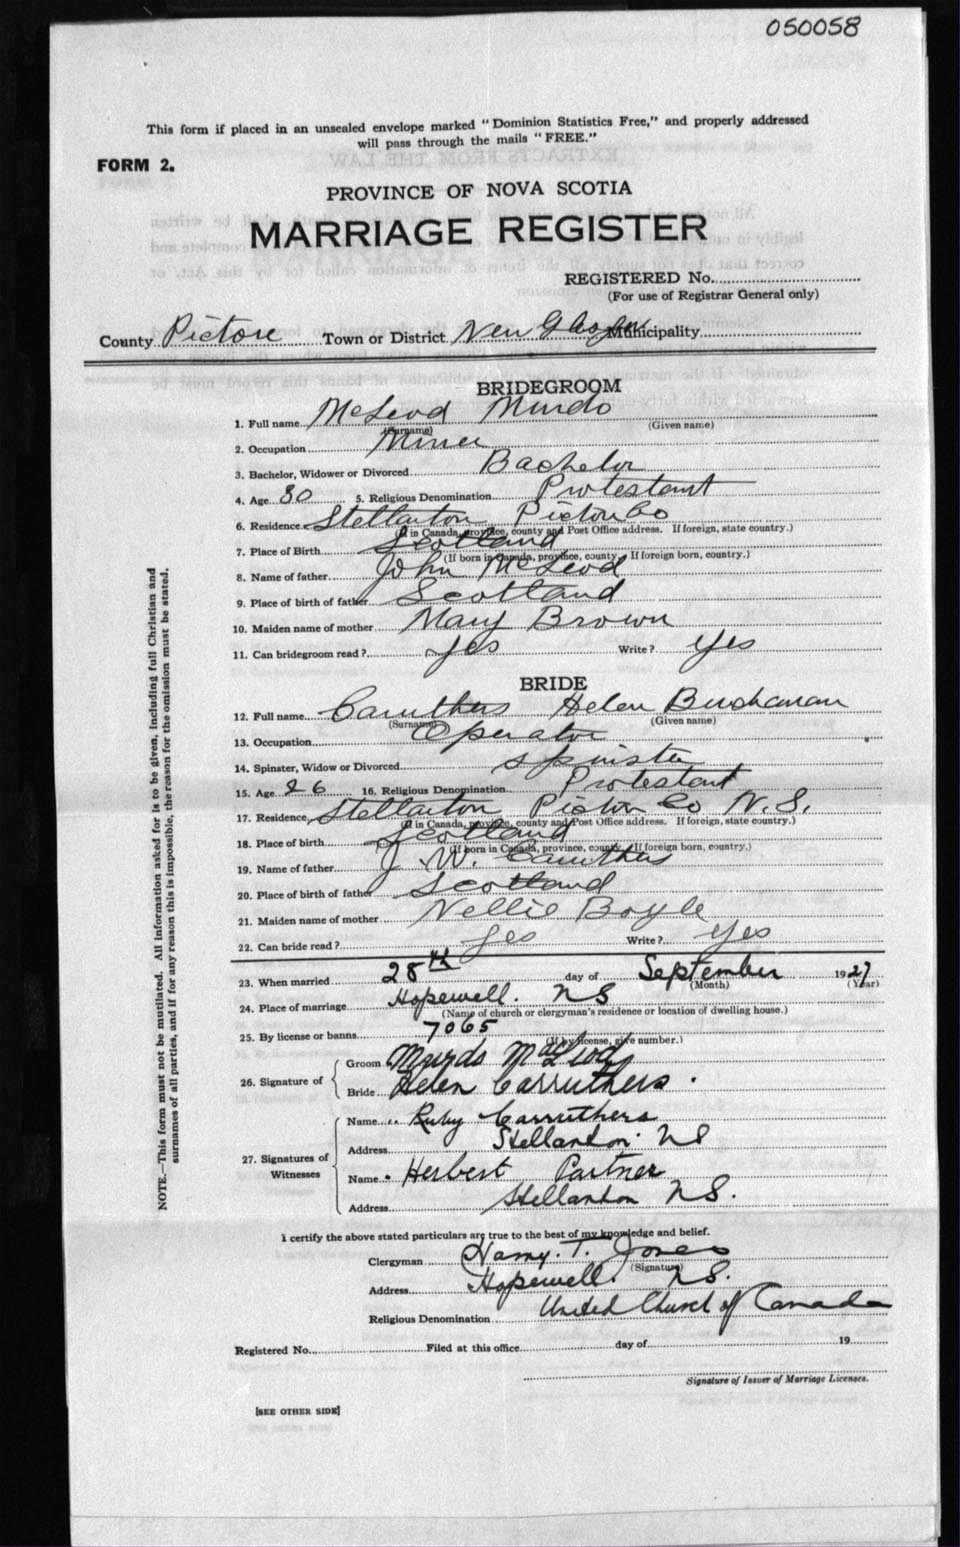 050058
This form if placed in an unsealed envelope marked "Dominion Statistics Free," and properly addressed
will pass through the mails "FREE."
FORM 2.
PROVINCE OF NOVA SCOTIA
MARRIAGE REGISTER
REGISTERED No.
(For use of Registrar General only)
County Pictou Town or District New Glasgow Municipality
BRIDEGROOM
1. Full name McLeod Murdo
(Surname) (Given name)
2. Occupation Miner
3. Bachelor, Widower or Divorced Bachelor
4. Age 30 5. Religious Denomination Protestant
6. Residence Stellarton Pictou Co
(If in Canada, province, county and Post Office address. If foreign, state country.)
7. Place of Birth Scotland
(If born in Canada, province, county. If foreign born, country.)
8. Name of father John McLeod
9. Place of birth of father Scotland
10. Maiden name of mother Mary Brown
11. Can bridegroom read? yes Write? yes
BRIDE
12. Full name Caruthers Helen Buchanan
(Surname) (Given name)
13. Occupation Operator
14. Spinster, Widow or Divorced spinster
15. Age 26 16. Religious Denomination Protestant
17. Residence Stellarton Pictou Co N.S.
(If in Canada, province, county and Post Office address. If foreign, state country.)
18. Place of birth Scotland
(If born in Canada, province, county. If foreign born, country.)
19. Name of father J. W. Caruthers
20. Place of birth of father Scotland
21. Maiden name of mother Nellie Boyle
22. Can bride read? yes Write? yes
23. When married 28th day of September 1927
(Month) (Year)
24. Place of marriage Hopewell. NS
(Name of church or clergyman's residence or location of dwelling house.)
25. By license or banns 7065
(If by license, give number.)
26. Signature of Groom Murdo MacLeod
Bride Helen Carruthers.
27. Signatures of Witnesses Name Ruby Carruthers
Address Stellarton. NS
Name Herbert Partner
Address Stellarton NS.
I certify the above stated particulars are true to the best of my knowledge and belief.
Clergyman Harry. T. Jones
(Signature)
Address Hopewell. NS.
Religious Denomination United Church of Canada
Registered No. Filed at this office day of 19
Signature of Issuer of Marriage Licenses.
[SEE OTHER SIDE]
NOTE.—This form must not be mutilated. All information asked for is to be given, including full Christian and
surnames of all parties, and if for any reason this is impossible, the reason for the omission must be stated.